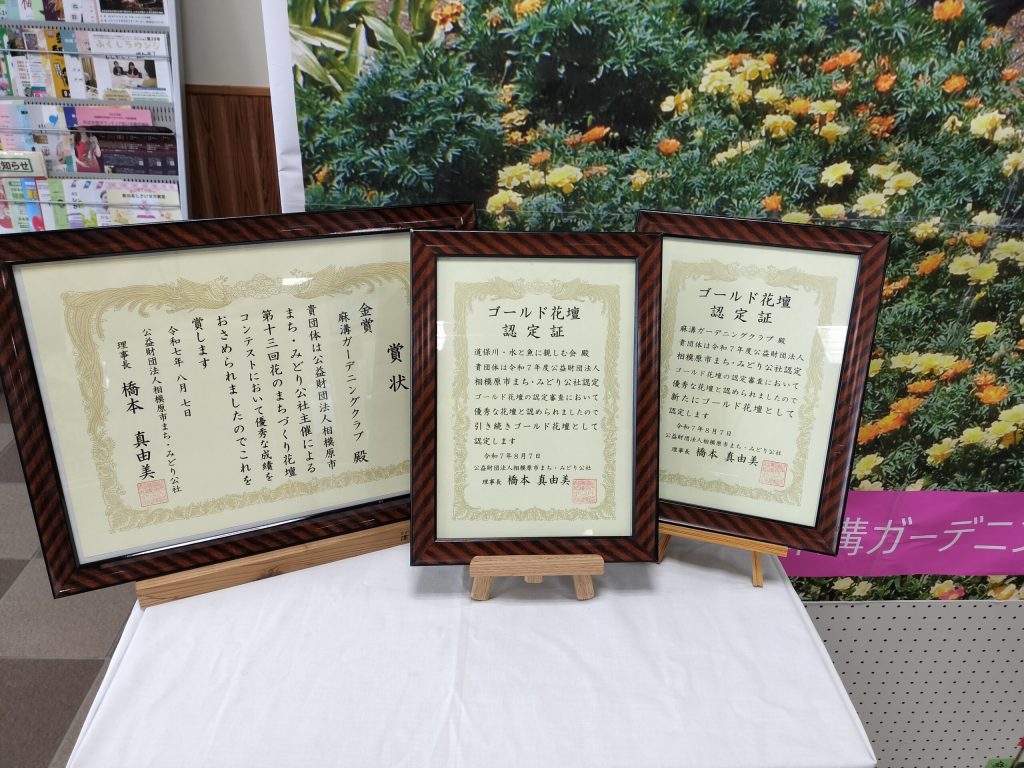 ふくしラウンジ
お知らせ
賞状
金賞
麻溝ガーデニングクラブ 殿
貴団体は公益財団法人相模原市
まち・みどり公社主催による
第十三回花のまちづくり花壇
コンテストにおいて優秀な成績を
おさめられましたのでこれを
賞します
令和七年 八月 七日
公益財団法人相模原市まち・みどり公社
理事長 橋本 真由美
ゴールド花壇
認定証
道保川・水と魚に親しむ会 殿
貴団体は令和7年度公益財団法人
相模原市まち・みどり公社認定
ゴールド花壇の認定審査において
優秀な花壇と認められましたので
引き続きゴールド花壇として
認定します
令和7年8月7日
公益財団法人相模原市まち・みどり公社
理事長 橋本 真由美
ゴールド花壇
認定証
麻溝ガーデニングクラブ 殿
貴団体は令和7年度公益財団法人
相模原市まち・みどり公社認定
ゴールド花壇の認定審査において
優秀な花壇と認められましたので
新たにゴールド花壇として
認定します
令和7年8月7日
公益財団法人相模原市まち・みどり公社
理事長 橋本 真由美
溝ガーデニン